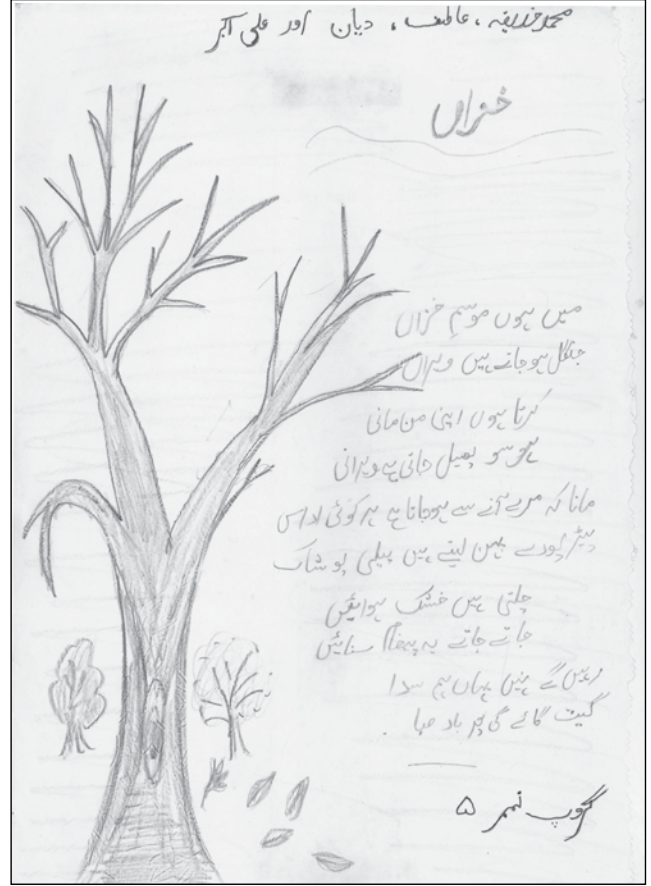 محمد حذیفہ، عاطف، دیان اور علی اکبر
خزاں
میں ہوں موسمِ خزاں
جنگل ہو جاتے ہیں ویراں
کرتا ہوں اپنی من مانی
ہر سو پھیل جاتی ہے ویرانی
مانا کہ میرے آنے سے ہو جاتا ہے ہر کوئی اداس
پیڑ پودے پہن لیتے ہیں پیلی پوشاک
چلتی ہیں خشک ہوائیں
جاتے جاتے یہ پیغام سنائیں
رہیں گے نہیں یہاں ہم سدا
گیت گائے گی پھر باد صبا
گروپ نمبر ۵